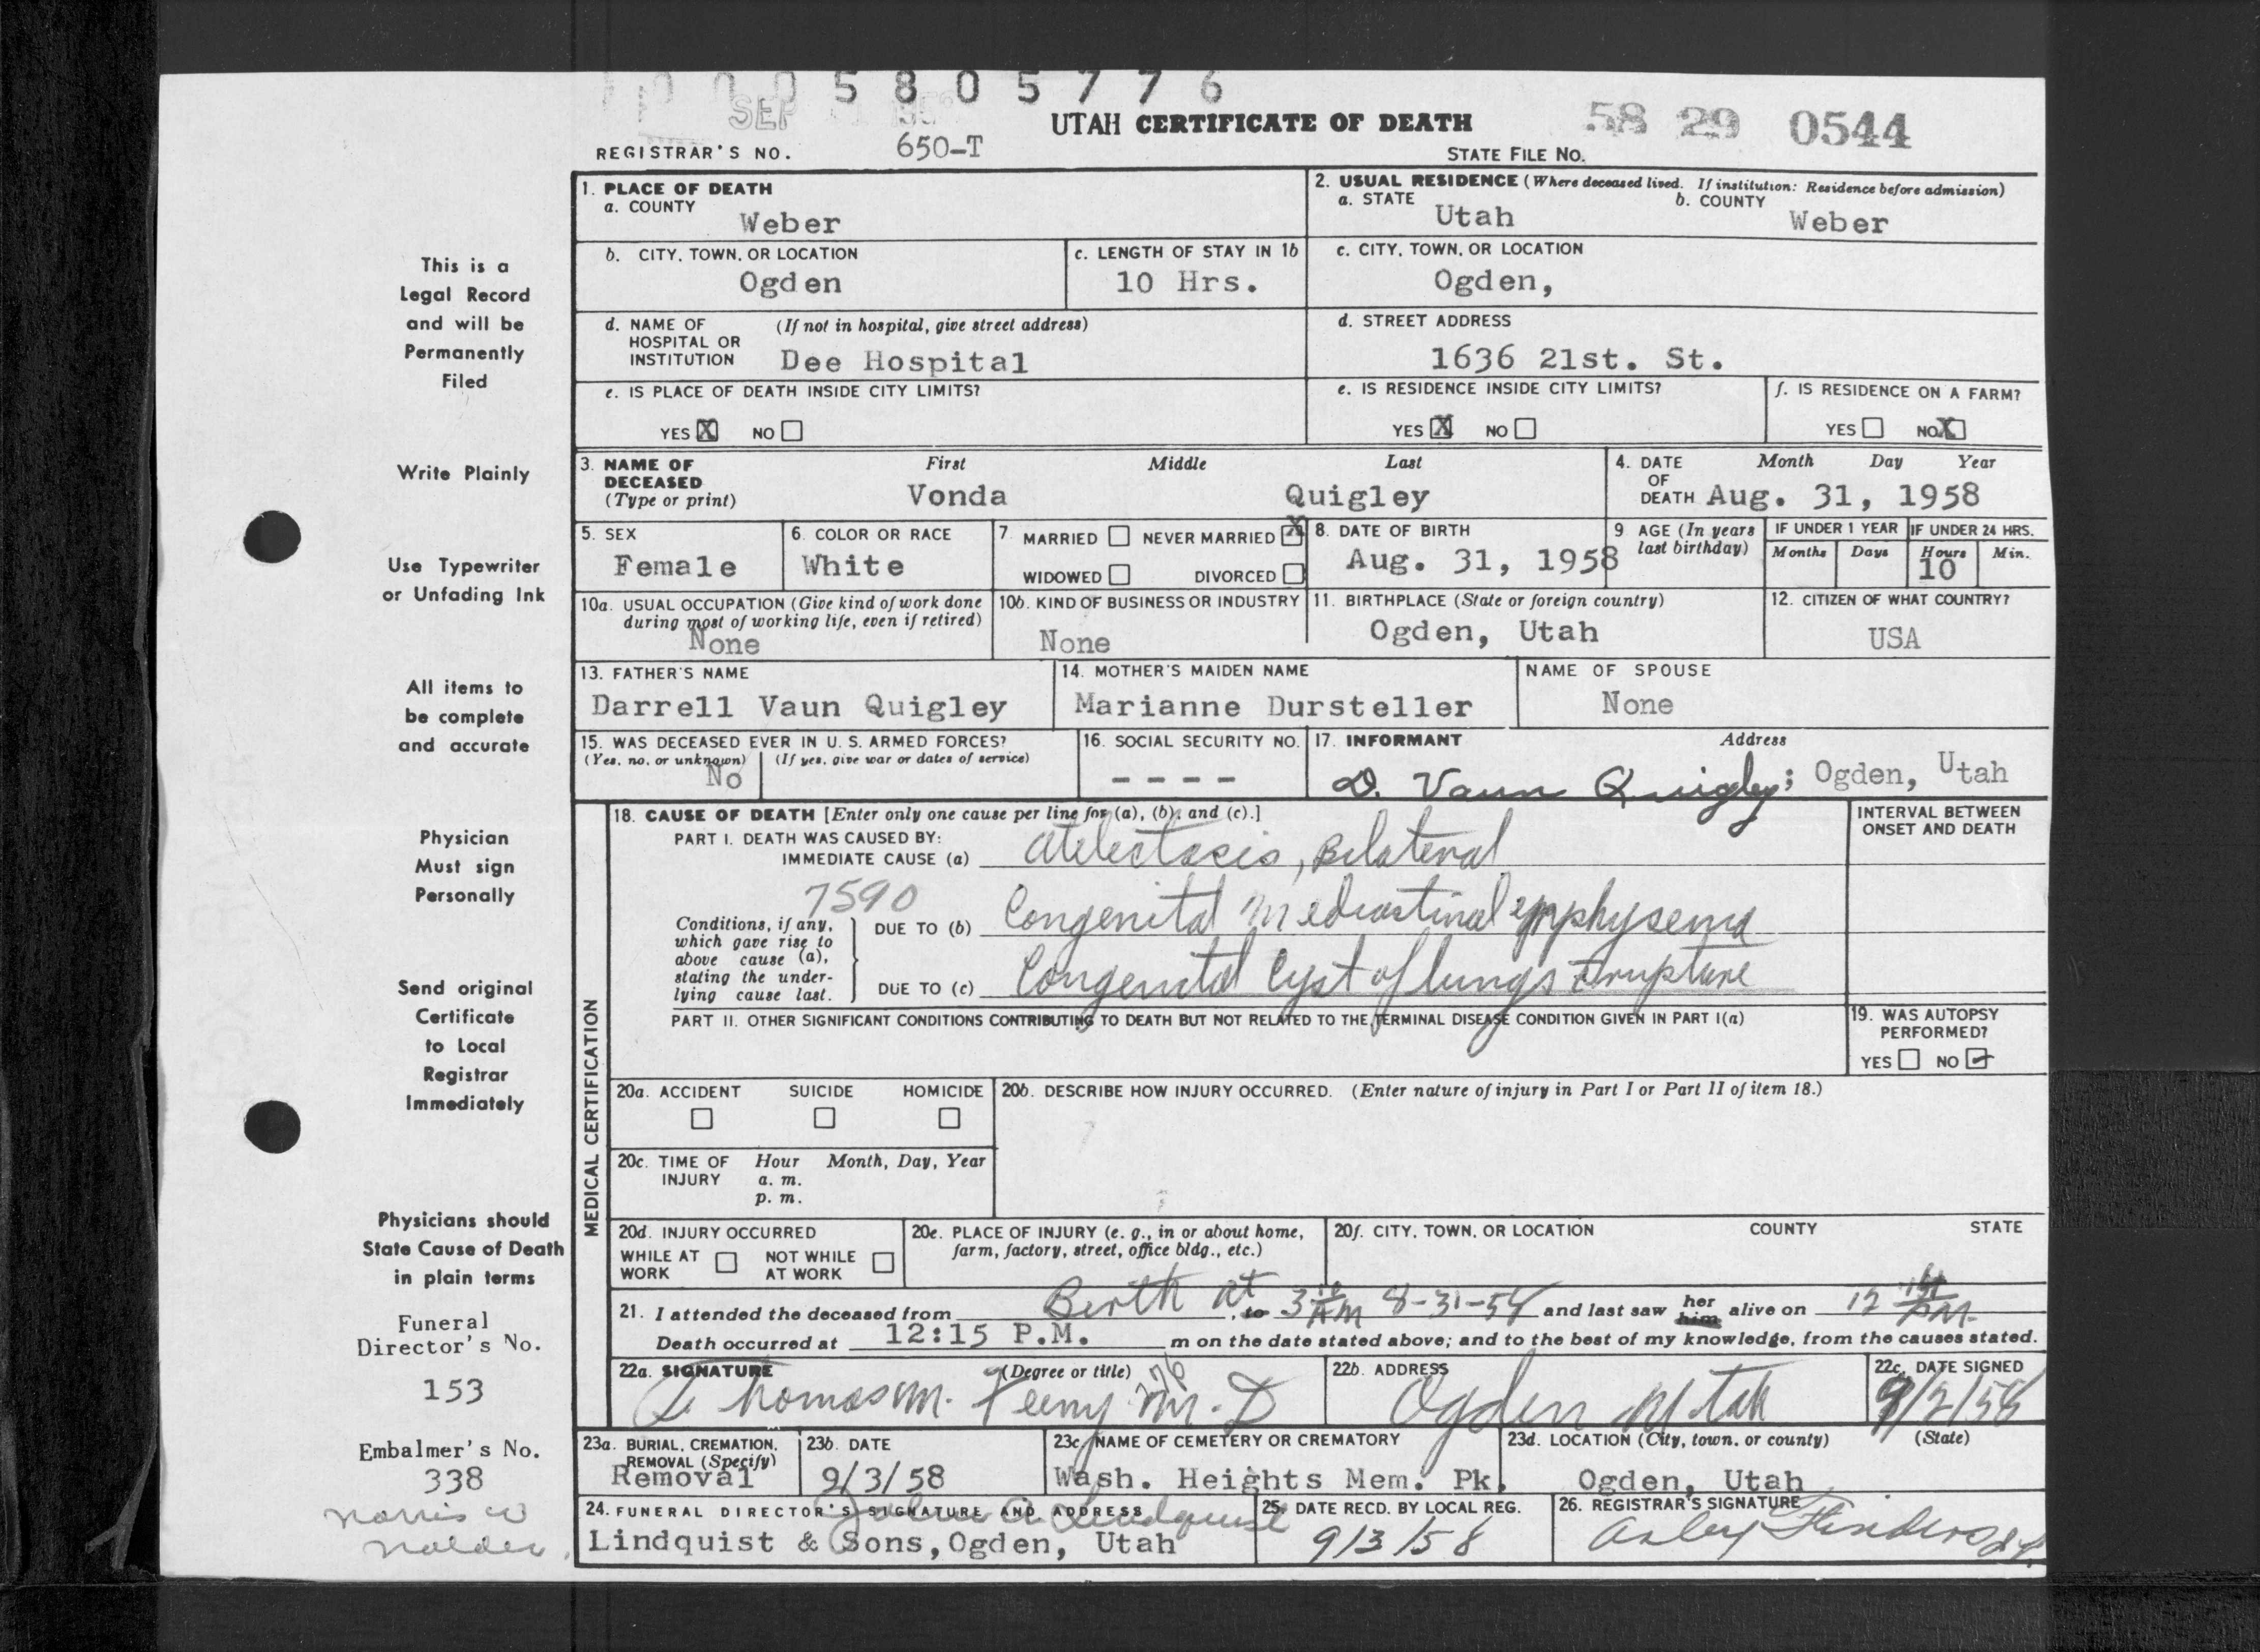 0005805776
SEP
UTAH CERTIFICATE OF DEATH
58 29 0544
REGISTRAR'S NO. 650-T
STATE FILE NO.
This is a
Legal Record
and will be
Permanently
Filed
Write Plainly
Use Typewriter
or Unfading Ink
All items to
be complete
and accurate
Physician
Must sign
Personally
Send original
Certificate
to Local
Registrar
Immediately
Physicians should
State Cause of Death
in plain terms
Funeral
Director's No.
153
Embalmer's No.
338
Norris W
1. PLACE OF DEATH
a. COUNTY
Weber
2. USUAL RESIDENCE (Where deceased lived. If institution: Residence before admission)
a. STATE Utah
b. COUNTY Weber
b. CITY, TOWN, OR LOCATION
Ogden
c. LENGTH OF STAY IN 1b
10 Hrs.
c. CITY, TOWN, OR LOCATION
Ogden,
d. NAME OF HOSPITAL OR INSTITUTION (If not in hospital, give street address)
Dee Hospital
d. STREET ADDRESS
1636 21st. St.
e. IS PLACE OF DEATH INSIDE CITY LIMITS?
YES X NO
e. IS RESIDENCE INSIDE CITY LIMITS?
YES X NO
f. IS RESIDENCE ON A FARM?
YES NO X
3. NAME OF DECEASED (Type or print)
First Middle Last
Vonda Quigley
4. DATE OF DEATH
Month Day Year
Aug. 31, 1958
5. SEX
Female
6. COLOR OR RACE
White
7. MARRIED NEVER MARRIED X
WIDOWED DIVORCED
8. DATE OF BIRTH
Aug. 31, 1958
9 AGE (In years last birthday)
IF UNDER 1 YEAR
Months Days
IF UNDER 24 HRS.
Hours Min.
10
10a. USUAL OCCUPATION (Give kind of work done during most of working life, even if retired)
None
10b. KIND OF BUSINESS OR INDUSTRY
None
11. BIRTHPLACE (State or foreign country)
Ogden, Utah
12. CITIZEN OF WHAT COUNTRY?
USA
13. FATHER'S NAME
Darrell Vaun Quigley
14. MOTHER'S MAIDEN NAME
Marianne Dursteller
NAME OF SPOUSE
None
15. WAS DECEASED EVER IN U. S. ARMED FORCES?
(Yes, no, or unknown) (If yes, give war or dates of service)
No
16. SOCIAL SECURITY NO.
- - - -
17. INFORMANT Address
D. Vaun Quigley; Ogden, Utah
MEDICAL CERTIFICATION
18. CAUSE OF DEATH [Enter only one cause per line for (a), (b), and (c).]
INTERVAL BETWEEN ONSET AND DEATH
PART I. DEATH WAS CAUSED BY:
IMMEDIATE CAUSE (a) Atelectasis, Bilateral
7590
Conditions, if any, which gave rise to above cause (a), stating the underlying cause last.
DUE TO (b) Congenital Mediastinal emphysema
DUE TO (c) Congenital Cyst of lungs c̄ rupture
PART II. OTHER SIGNIFICANT CONDITIONS CONTRIBUTING TO DEATH BUT NOT RELATED TO THE TERMINAL DISEASE CONDITION GIVEN IN PART I(a)
19. WAS AUTOPSY PERFORMED?
YES NO ✓
20a. ACCIDENT SUICIDE HOMICIDE
20b. DESCRIBE HOW INJURY OCCURRED. (Enter nature of injury in Part I or Part II of item 18.)
20c. TIME OF INJURY Hour Month, Day, Year
a. m.
p. m.
20d. INJURY OCCURRED
WHILE AT WORK NOT WHILE AT WORK
20e. PLACE OF INJURY (e. g., in or about home, farm, factory, street, office bldg., etc.)
20f. CITY, TOWN, OR LOCATION COUNTY STATE
21. I attended the deceased from Birth at, to 3 AM 8-31-58 and last saw her him alive on 12 PM.
Death occurred at 12:15 P.M. m on the date stated above; and to the best of my knowledge, from the causes stated.
22a. SIGNATURE (Degree or title)
Thomas M. Feeny M.D
276
22b. ADDRESS
Ogden Utah
22c. DATE SIGNED
9/2/58
23a. BURIAL, CREMATION, REMOVAL (Specify)
Removal
23b. DATE
9/3/58
23c. NAME OF CEMETERY OR CREMATORY
Wash. Heights Mem. Pk.
23d. LOCATION (City, town, or county) (State)
Ogden, Utah
24. FUNERAL DIRECTOR'S SIGNATURE AND ADDRESS
John A Lindquist
Lindquist & Sons, Ogden, Utah
25. DATE RECD. BY LOCAL REG.
9/3/58
26. REGISTRAR'S SIGNATURE